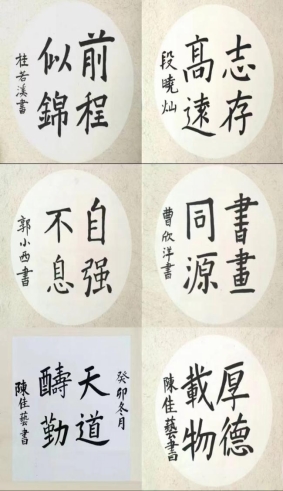 前程
似錦
桂若溪書
志存
高遠
段曉灿
自强
不息
郭小西書
書畫
同源
曹欣洋書
癸卯冬月
天道
醻勤
陳佳藝書
厚德
載物
陳佳藝書